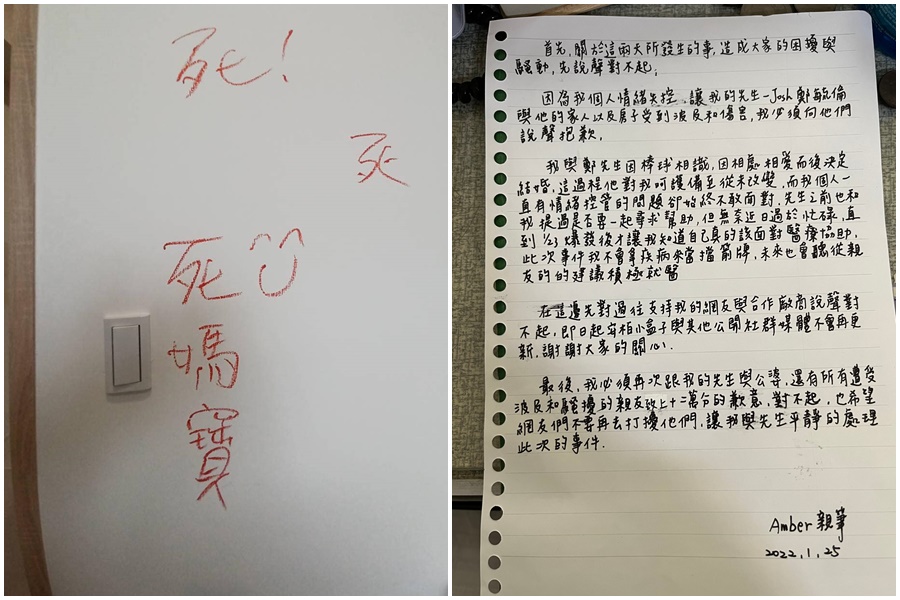 死!
死
死
媽
寶
首先,關於這兩天所發生的事,造成大家的困擾與
騷動,先說聲對不起,
因為我個人情緒失控,讓我的先生-Josh鄭毓倫
與他的家人以及房子受到波及和傷害,我必須向他們
說聲抱歉.
我與鄭先生因棒球相識,因相處相愛而後決定
結婚,這過程他對我呵護備至從未改變,而我個人一
直有情緒控管的問題卻始終不敢面對,先生之前也和
我提過是否要一起尋求幫助,但無奈近日過於忙碌,直
到1/23爆發後才讓我知道自己真的該面對醫療協助,
此次事件我不會拿疾病來當擋箭牌,未來也會聽從親
友的的建議積極就醫
在這邊先對過往支持我的網友與合作廠商說聲對
不起,即日起安柏小盒子與其他公開社群媒體不會再更
新,謝謝大家的關心.
最後,我必須再次跟我的先生與公婆,還有所有遭受
波及和騷擾的親友致上十二萬分的歉意,對不起,也希望
網友們不要再去打擾他們,讓我與先生平靜的處理
此次的事件.
Amber 親筆
2022.1.25